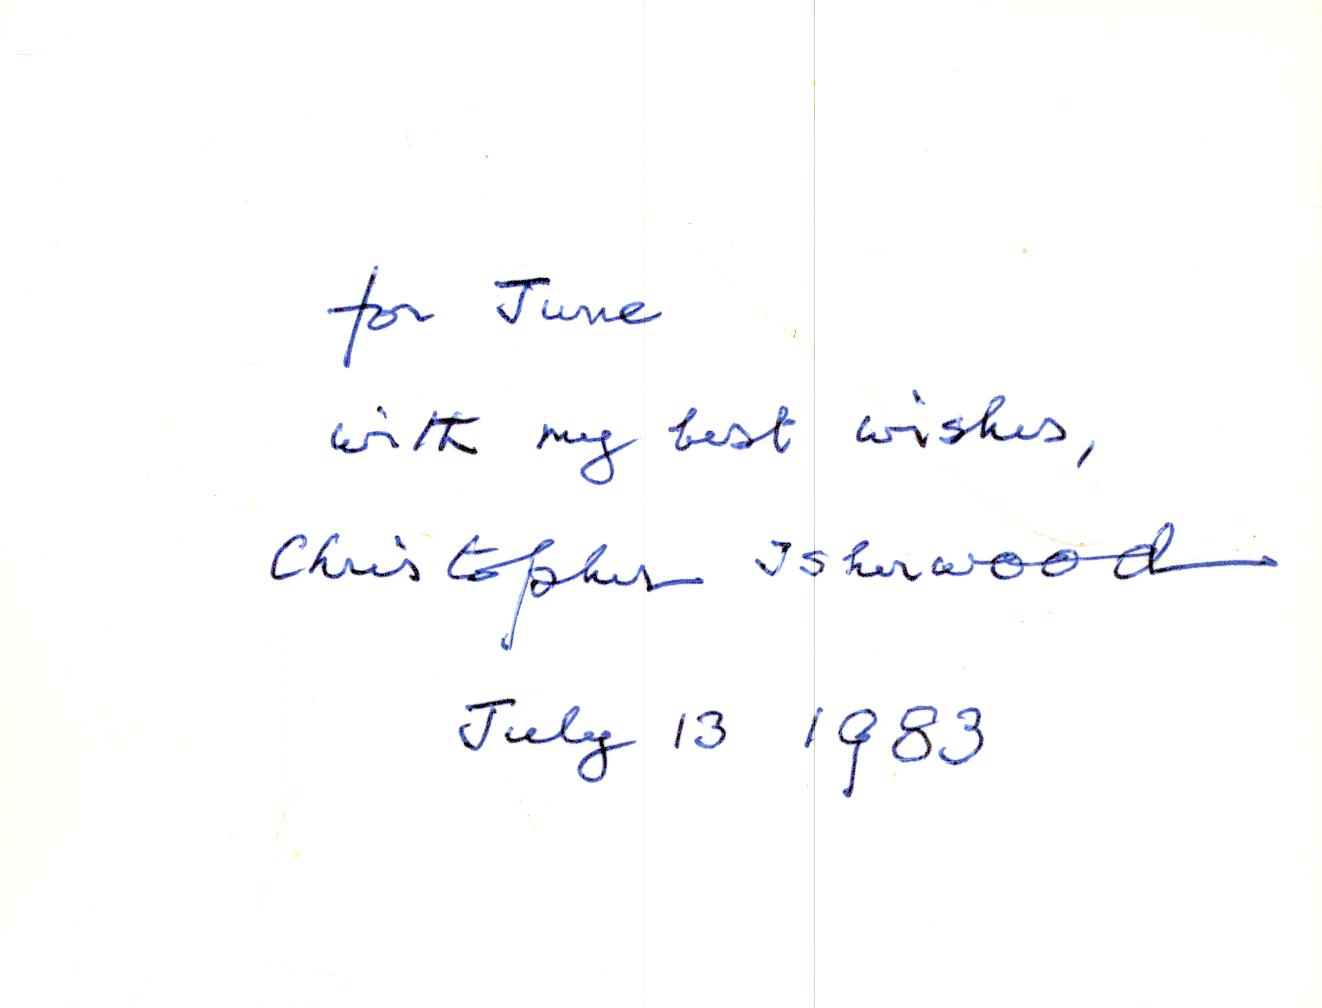 for June
with my best wishes,
Christopher Isherwood
July 13 1983